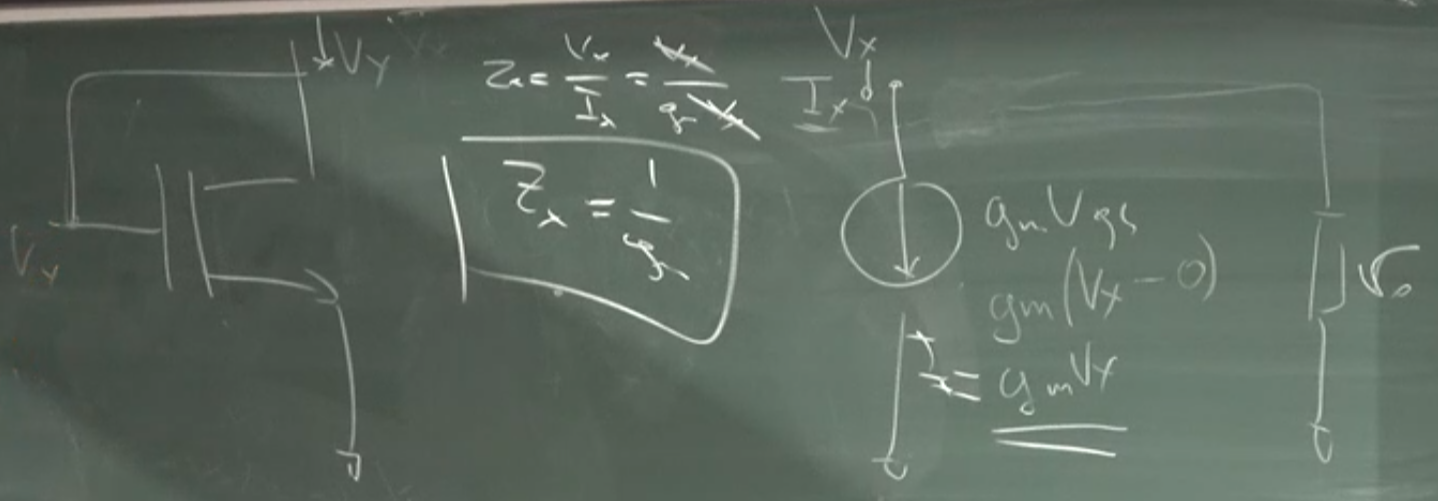 V_Y
V_Y
Z_x = V_x / I_x = V_x / g_m V_x
Z_x = 1 / g_m
V_x
I_x
g_m V_gs
g_m (V_x - 0)
= g_m V_x
r_o